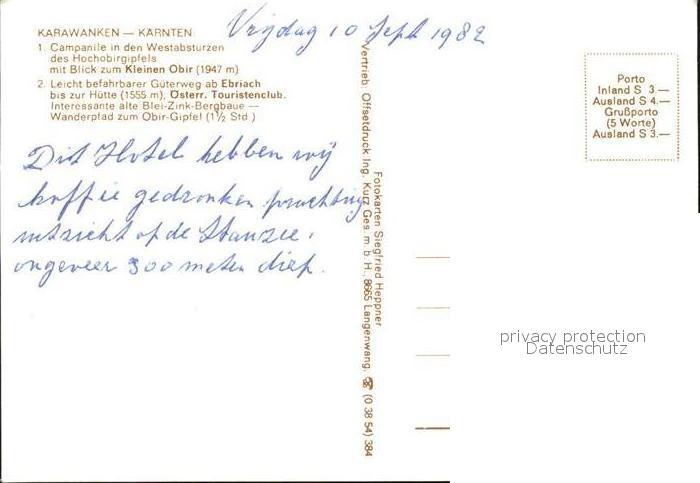 Vrijdag 10 Sept 1982
KARAWANKEN — KÄRNTEN
1. Campanile in den Westabstürzen
des Hochobirgipfels
mit Blick zum Kleinen Obir (1947 m)
2. Leicht befahrbarer Güterweg ab Ebriach
bis zur Hütte (1555 m), Österr. Touristenclub.
Interessante alte Blei-Zink-Bergbaue —
Wanderpfad zum Obir-Gipfel (1½ Std.)
Dit Hotel hebben wij
koffie gedronken prachtig
uitzicht op de
ongeveer 300 meter diep.
Vertrieb: Offsetdruck Ing. Kurz Ges. m. b. H., 8665 Langenwang, ☎ (0 38 54) 384
Fotokarten Siegfried Heppner
Porto
Inland S 3.—
Ausland S 4.—
Grußporto
(5 Worte)
Ausland S 3.—
privacy protection
Datenschutz